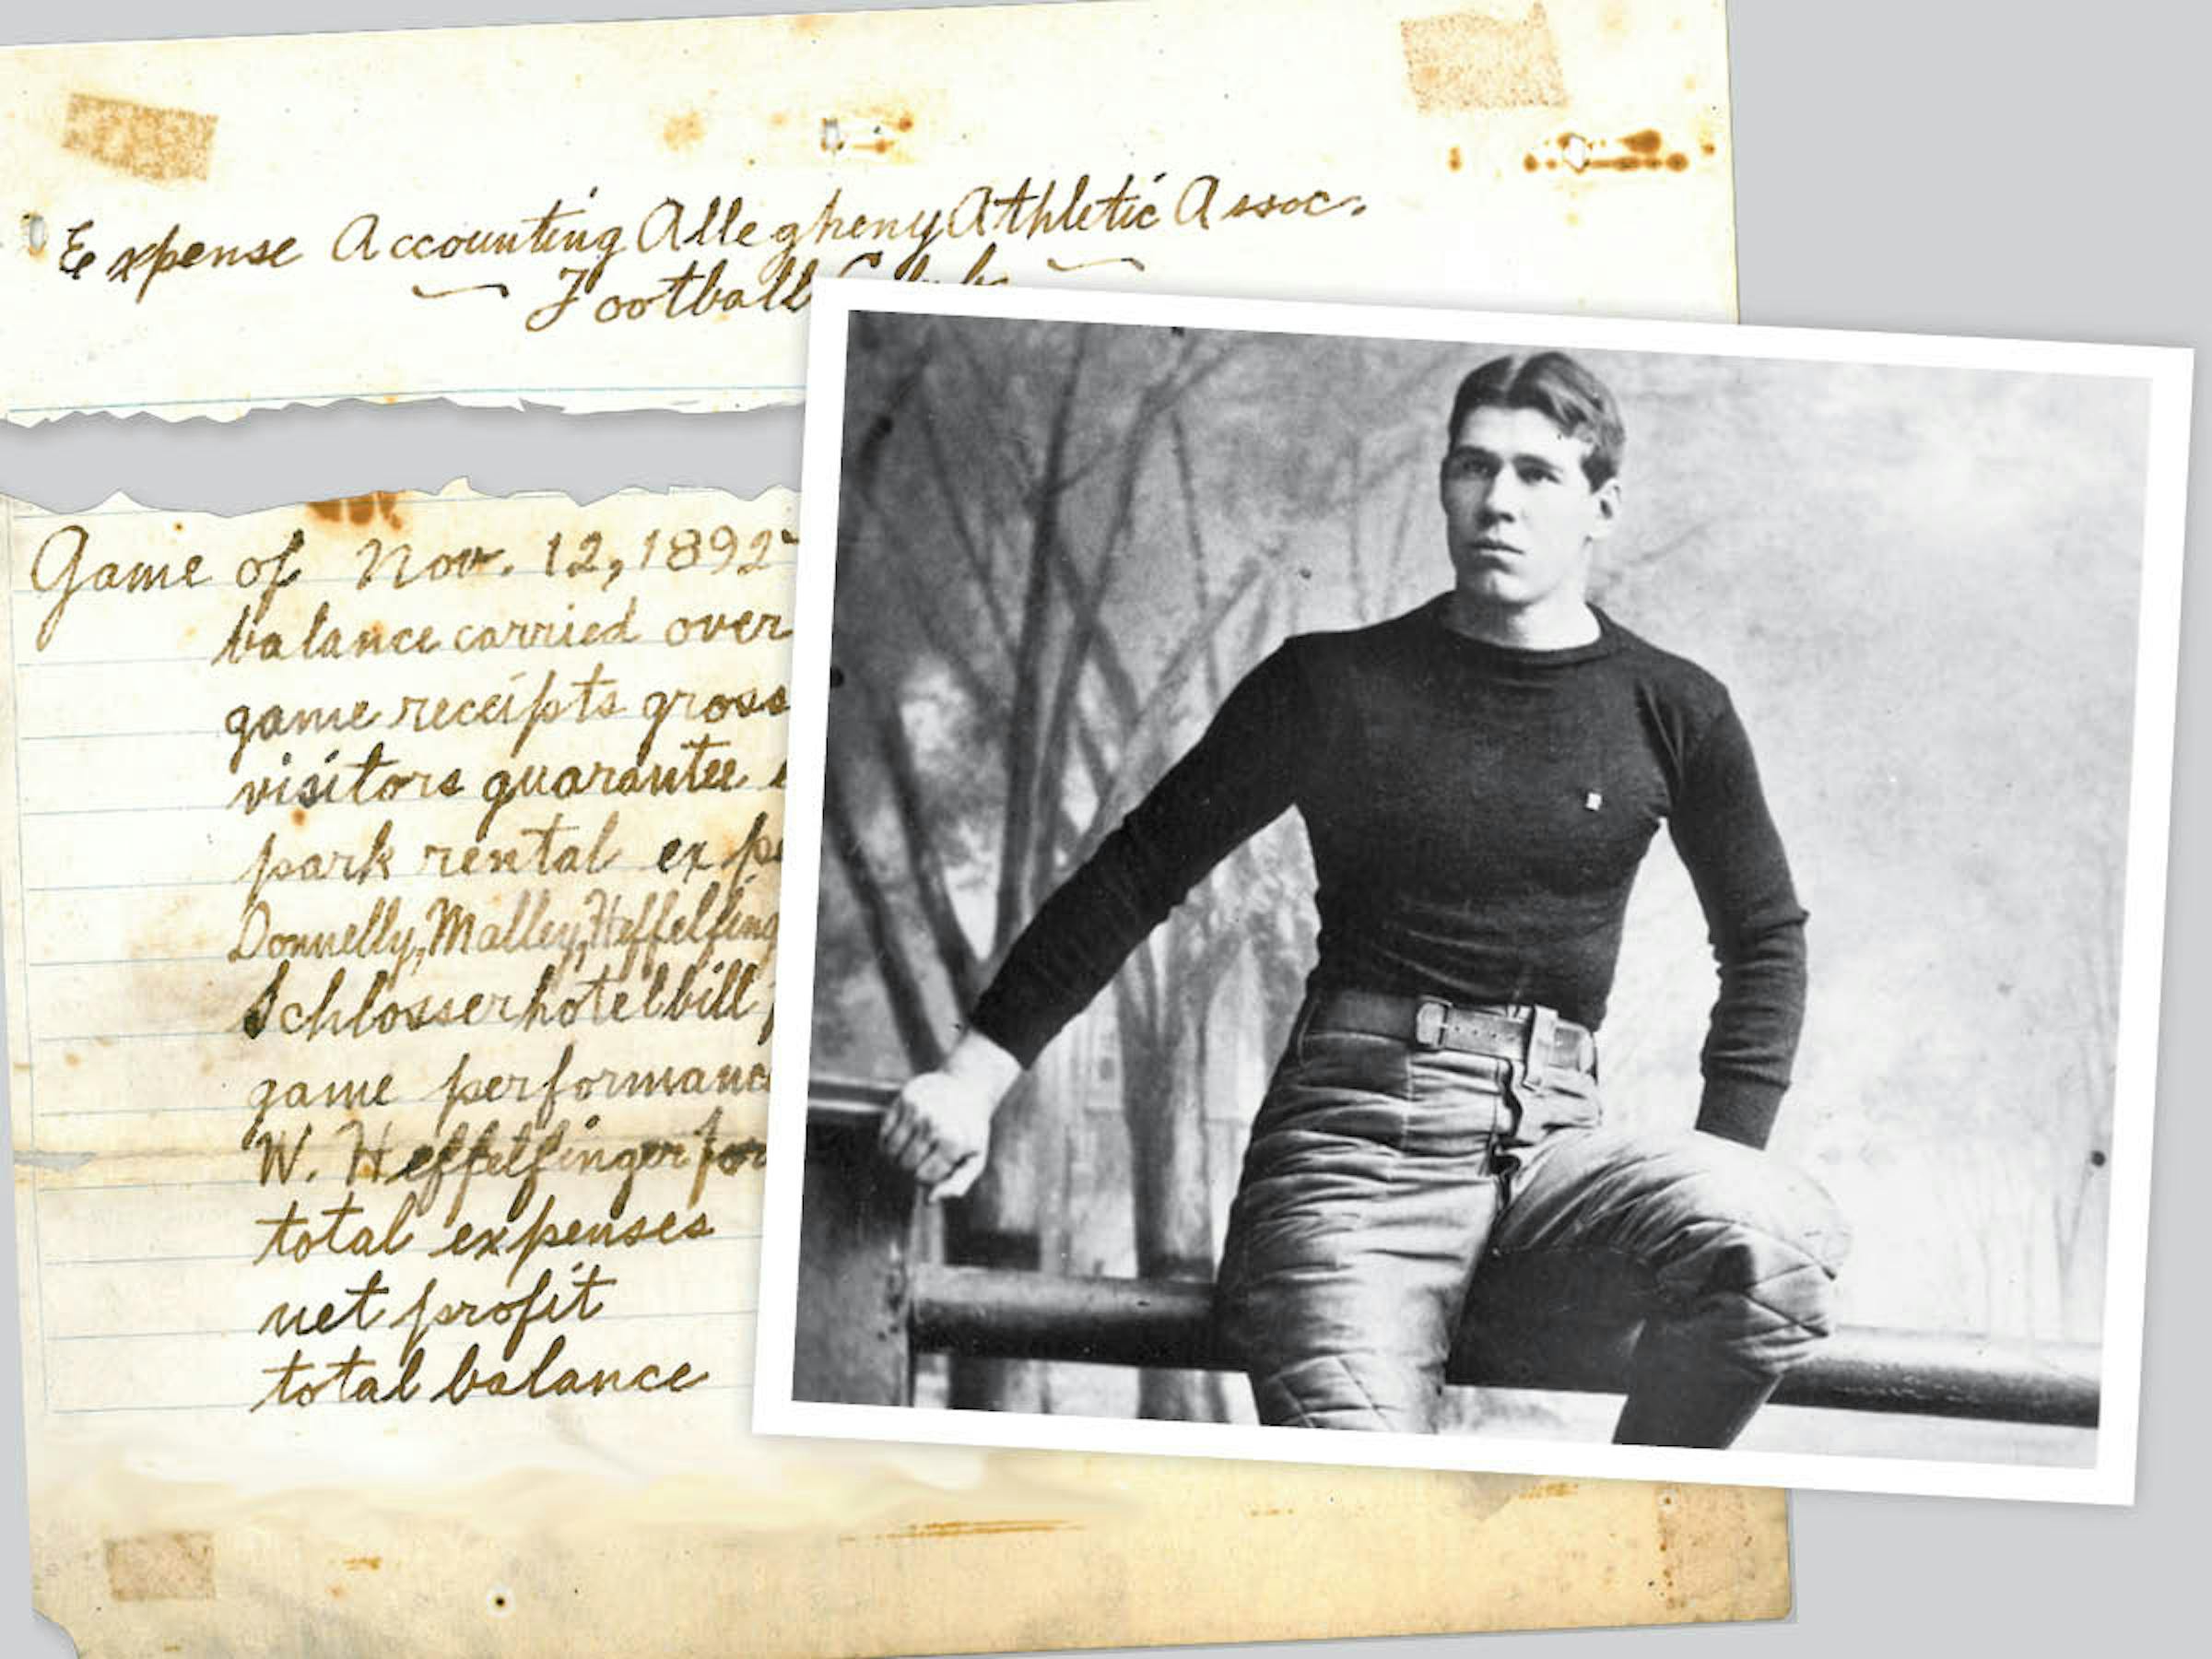 Expense Accounting Allegheny Athletic Assoc.
Football Club
Game of Nov. 12, 1892
balance carried over
game receipts gross
visitors guarantee
park rental exp
Donnelly, Malley, Heffelfing
Schlosser hotel bill
game performanc
W. Heffelfinger for
total expenses
net profit
total balance